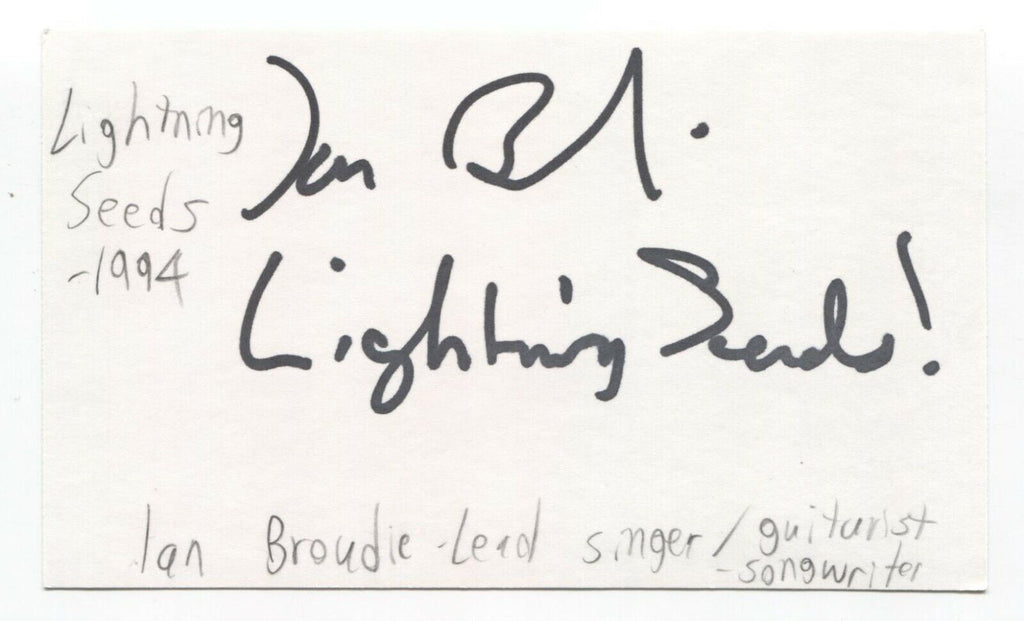 Lightning
Seeds
-1994
Ian B
Lightning Seeds!
Ian Broudie - Lead singer / guitarist
- songwriter